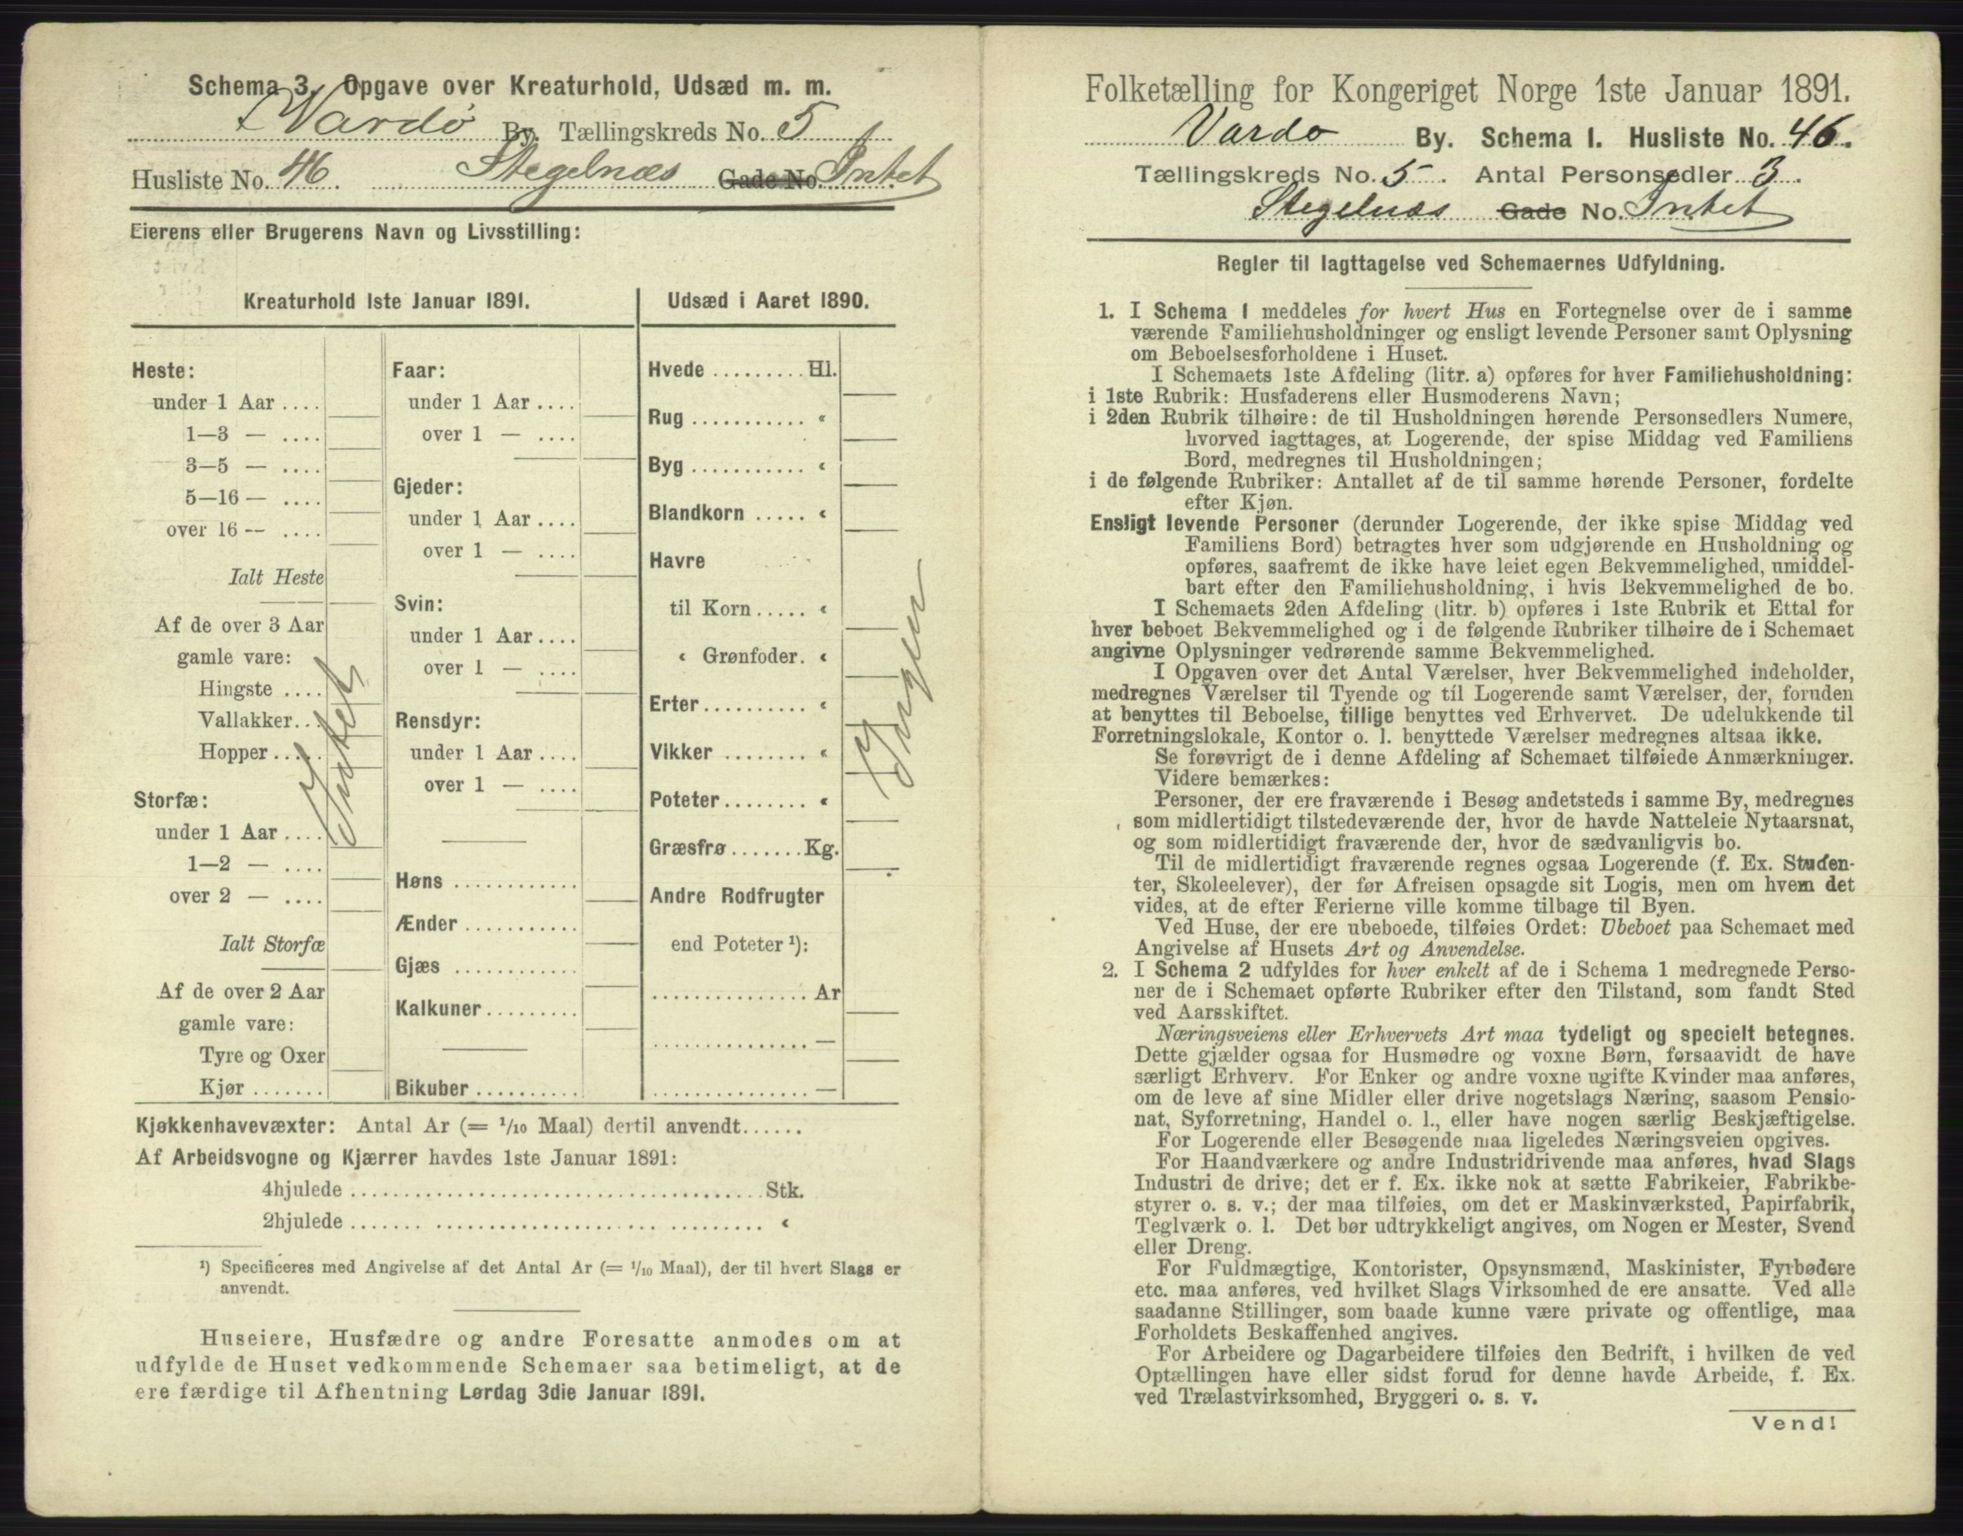 Schema 3. Opgave over Kreaturhold, Udsæd m. m.
Vardø By. Tællingskreds No. 5
Husliste No. 46. Stegelnæs Gade No. Intet
Eierens eller Brugerens Navn og Livsstilling:
Kreaturhold 1ste Januar 1891.
Heste:
under 1 Aar ....
1—3 — ....
3—5 — ....
5—16 — ....
over 16 -- ....
Ialt Heste
Af de over 3 Aar
gamle vare:
Hingste ....
Vallakker...
Hopper .....
Intet
Storfæ:
under 1 Aar ....
1—2 — ....
over 2 — ....
Ialt Storfæ
Af de over 2 Aar
gamle vare:
Tyre og Oxer
Kjør .......
Faar:
under 1 Aar ....
over 1 — ....
Gjeder:
under 1 Aar ....
over 1 — ....
Svin:
under 1 Aar ....
over 1 — ....
Rensdyr:
under 1 Aar ....
over 1 — ....
Høns ............
Ænder ...........
Gjæs ............
Kalkuner .........
Bikuber ..........
Udsæd i Aaret 1890.
Hvede ......... Hl.
Rug ........... «
Byg ........... «
Blandkorn ..... «
Havre
til Korn ..... «
« Grønfoder. «
Erter .......... «
Vikker ......... «
Poteter ........ «
Græsfrø ....... Kg.
Andre Rodfrugter
end Poteter ¹):
............... Ar
............... —
............... —
Ingen
Kjøkkenhavevæxter: Antal Ar (= 1/10 Maal) dertil anvendt......
Af Arbeidsvogne og Kjærrer havdes 1ste Januar 1891:
4hjulede ...................................... Stk.
2hjulede ...................................... «
¹) Specificeres med Angivelse af det Antal Ar (= 1/10 Maal), der til hvert Slags er
anvendt.
Huseiere, Husfædre og andre Foresatte anmodes om at
udfylde de Huset vedkommende Schemaer saa betimeligt, at de
ere færdige til Afhentning Lørdag 3die Januar 1891.
Folketælling for Kongeriget Norge 1ste Januar 1891.
Vardo By. Schema 1. Husliste No. 46.
Tællingskreds No. 5. Antal Personsedler 3.
Stegelnæs Gade No. Intet
Regler til Iagttagelse ved Schemaernes Udfyldning.
1. I Schema 1 meddeles for hvert Hus en Fortegnelse over de i samme
værende Familiehusholdninger og ensligt levende Personer samt Oplysning
om Beboelsesforholdene i Huset.
I Schemaets 1ste Afdeling (litr. a) opføres for hver Familiehusholdning:
i 1ste Rubrik: Husfaderens eller Husmoderens Navn;
i 2den Rubrik tilhøire: de til Husholdningen hørende Personsedlers Numere,
hvorved iagttages, at Logerende, der spise Middag ved Familiens
Bord, medregnes til Husholdningen;
i de følgende Rubriker: Antallet af de til samme hørende Personer, fordelte
efter Kjøn.
Ensligt levende Personer (derunder Logerende, der ikke spise Middag ved
Familiens Bord) betragtes hver som udgjørende en Husholdning og
opføres, saafremt de ikke have leiet egen Bekvemmelighed, umiddel-
bart efter den Familiehusholdning, i hvis Bekvemmelighed de bo.
I Schemaets 2den Afdeling (litr. b) opføres i 1ste Rubrik et Ettal for
hver beboet Bekvemmelighed og i de følgende Rubriker tilhøire de i Schemaet
angivne Oplysninger vedrørende samme Bekvemmelighed.
I Opgaven over det Antal Værelser, hver Bekvemmelighed indeholder,
medregnes Værelser til Tyende og til Logerende samt Værelser, der, foruden
at benyttes til Beboelse, tillige benyttes ved Erhvervet. De udelukkende til
Forretningslokale, Kontor o. l. benyttede Værelser medregnes altsaa ikke.
Se forøvrigt de i denne Afdeling af Schemaet tilføiede Anmærkninger.
Videre bemærkes:
Personer, der ere fraværende i Besøg andetsteds i samme By, medregnes
som midlertidigt tilstedeværende der, hvor de havde Natteleie Nytaarsnat,
og som midlertidigt fraværende der, hvor de sædvanligvis bo.
Til de midlertidigt fraværende regnes ogsaa Logerende (f. Ex. Studen-
ter, Skoleelever), der før Afreisen opsagde sit Logis, men om hvem det
vides, at de efter Ferierne ville komme tilbage til Byen.
Ved Huse, der ere ubeboede, tilføies Ordet: Ubeboet paa Schemaet med
Angivelse af Husets Art og Anvendelse.
2. I Schema 2 udfyldes for hver enkelt af de i Schema 1 medregnede Perso-
ner de i Schemaet opførte Rubriker efter den Tilstand, som fandt Sted
ved Aarsskiftet.
Næringsveiens eller Erhvervets Art maa tydeligt og specielt betegnes.
Dette gjælder ogsaa for Husmødre og voxne Børn, forsaavidt de have
særligt Erhverv. For Enker og andre voxne ugifte Kvinder maa anføres,
om de leve af sine Midler eller drive nogetslags Næring, saasom Pensio-
nat, Syforretning, Handel o. l., eller have nogen særlig Beskjæftigelse.
For Logerende eller Besøgende maa ligeledes Næringsveien opgives.
For Haandværkere og andre Industridrivende maa anføres, hvad Slags
Industri de drive; det er f. Ex. ikke nok at sætte Fabrikeier, Fabrikbe-
styrer o. s. v.; der maa tilføies, om det er Maskinværksted, Papirfabrik,
Teglværk o. l. Det bør udtrykkeligt angives, om Nogen er Mester, Svend
eller Dreng.
For Fuldmægtige, Kontorister, Opsynsmænd, Maskinister, Fyrbødere
etc. maa anføres, ved hvilket Slags Virksomhed de ere ansatte. Ved alle
saadanne Stillinger, som baade kunne være private og offentlige, maa
Forholdets Beskaffenhed angives.
For Arbeidere og Dagarbeidere tilføies den Bedrift, i hvilken de ved
Optællingen have eller sidst forud for denne havde Arbeide, f. Ex.
ved Trælastvirksomhed, Bryggeri o. s. v.
Vend!